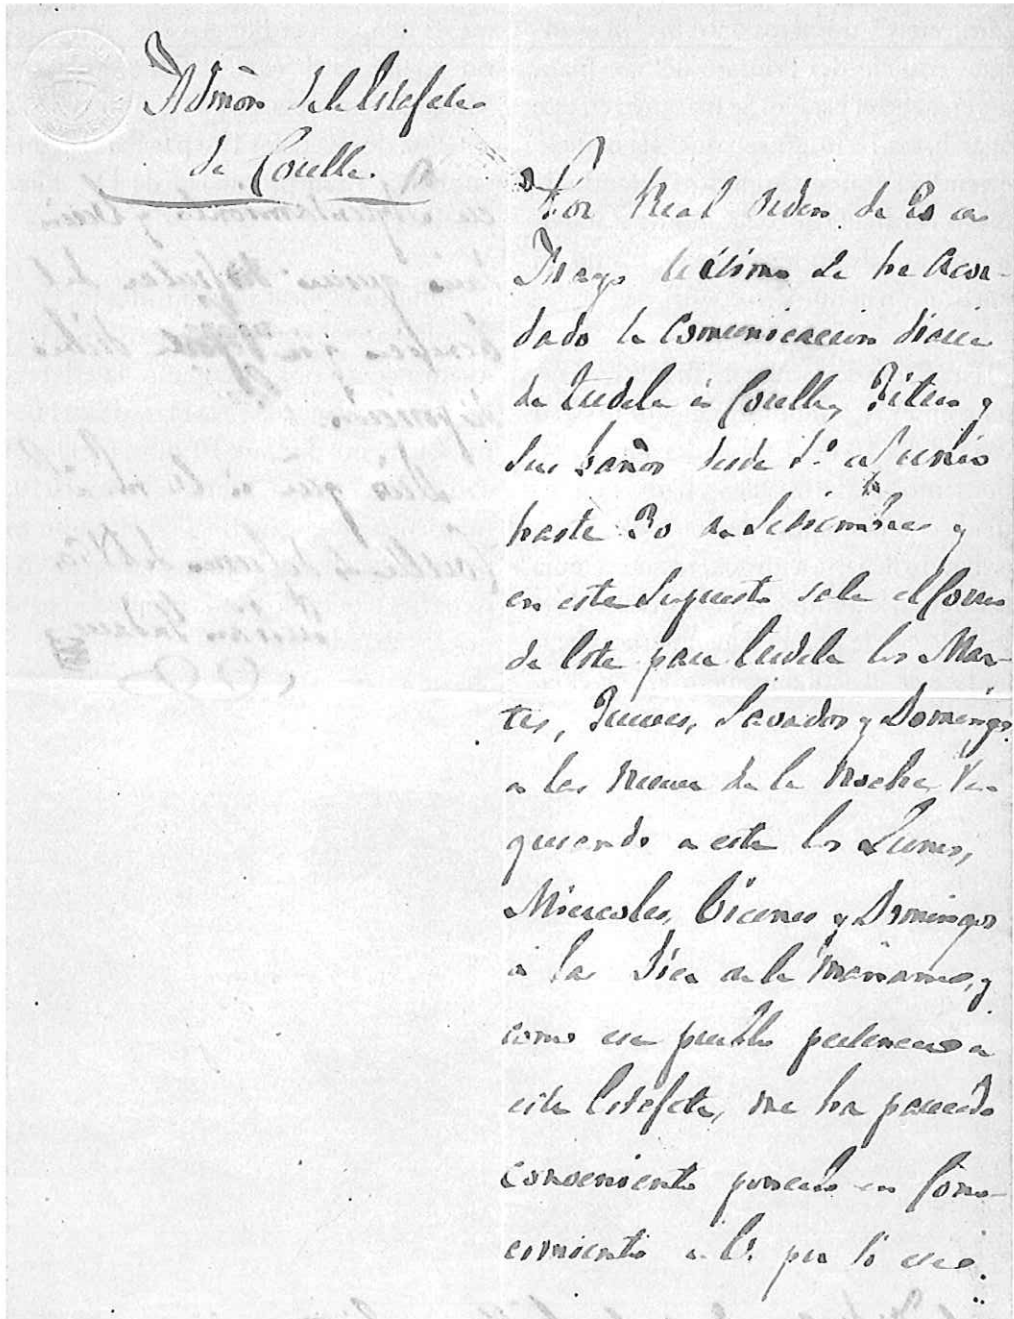 Admón de la Estafeta
de Corella.
Por Real orden de 20 de
Mayo último se ha acor-
dado la Comunicacion diaria
de Tudela á Corella, Fitero y
sus baños desde 1.º de Junio
hasta 30 de Setiembre y
en este supuesto sale el Correo
de esta para Tudela los Mar-
tes, Jueves, Savados y Domingos
a las nueve de la noche, re-
gresando a esta los Lunes,
Miercoles, Viernes y Domingos
a las diez de la mañana, y
como ese pueblo pertenece a
esta Estafeta, me ha parecido
conveniente ponerlo en Cono-
cimiento de V. por si ese